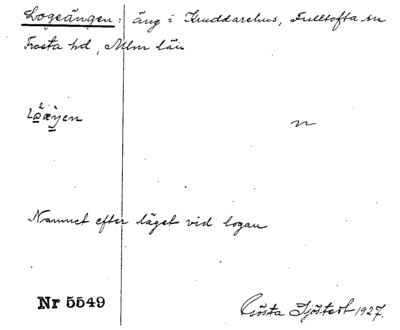 Logeängen: äng i Knuddarehus, Fulltofta sn
Frosta hd, Mlm län
n
Namnet efter läget vid logan
Nr 5549 Gösta Sjöstedt 1927.